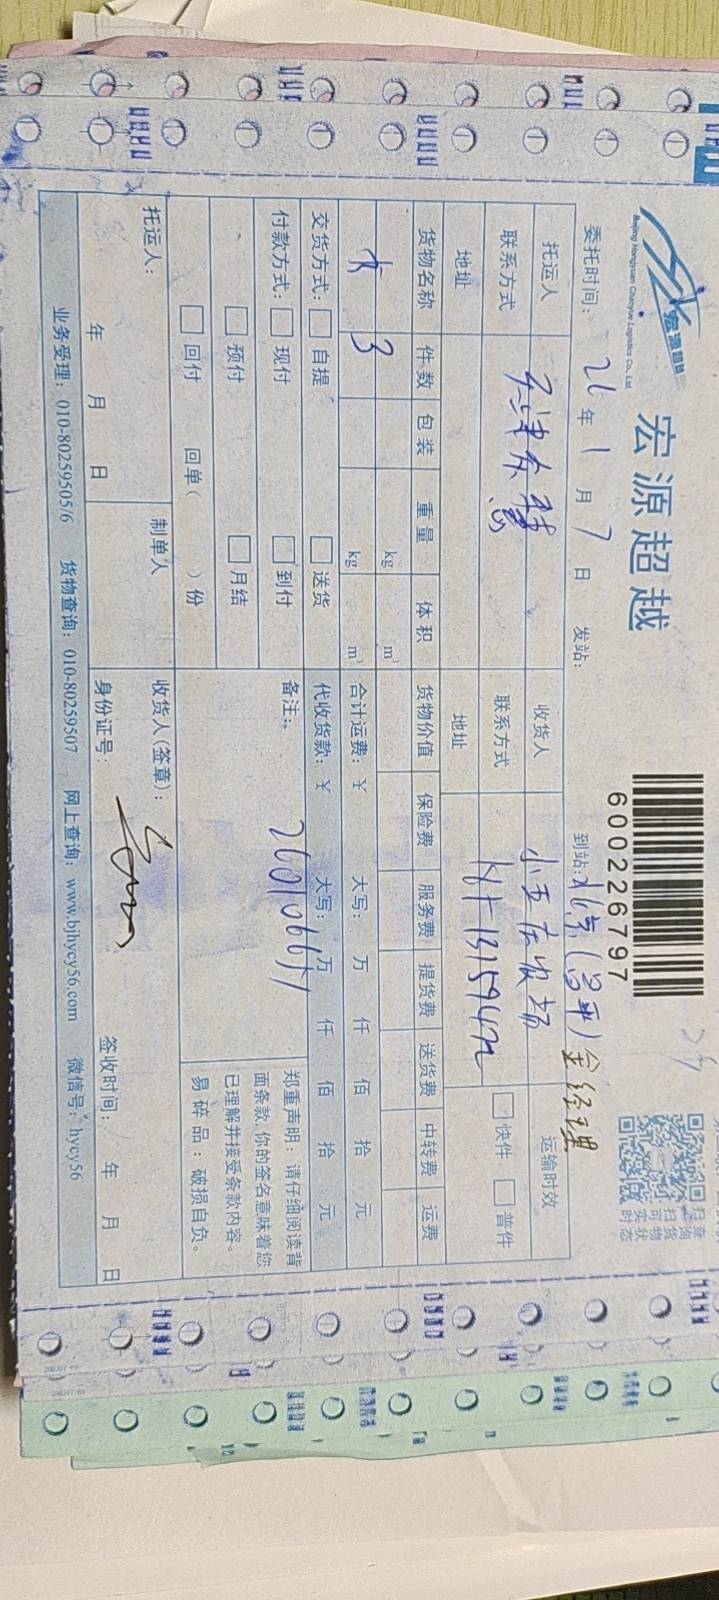 宏源超越
Beijing Hongyuan Chaoyue Logistics Co., Ltd.
宏源超越
600226797
扫查
扫询
可货
实物
时状
态
委托时间: 26 年 1 月 7 日 发站: 到站: 北京(昌平) 金经理
托运人 天津东 收货人 小王庄收 运输时效
联系方式 联系方式 快件 普件
地址 地址
货物名称 件数 包装 重量 体积 货物价值 保险费 服务费 提货费 送货费 中转费 运费
kg m³
3 kg m³ 合计运费: ¥ 大写: 万 仟 佰 拾 元
交货方式: 自提 送货 代收货款: ¥ 大写: 万 仟 佰 拾 元
付款方式: 现付 到付 备注:
预付 月结
回付 回单( )份
郑重声明:请仔细阅读背
面条款,你的签名意味着您
已理解并接受条款内容。
易碎品:破损自负。
托运人: 制单人 收货人(签章):
年 月 日 身份证号: 签收时间: 年 月 日
业务受理: 010-80259505/6 货物查询: 010-80259507 网上查询: www.bjhycy56.com 微信号: hycy56